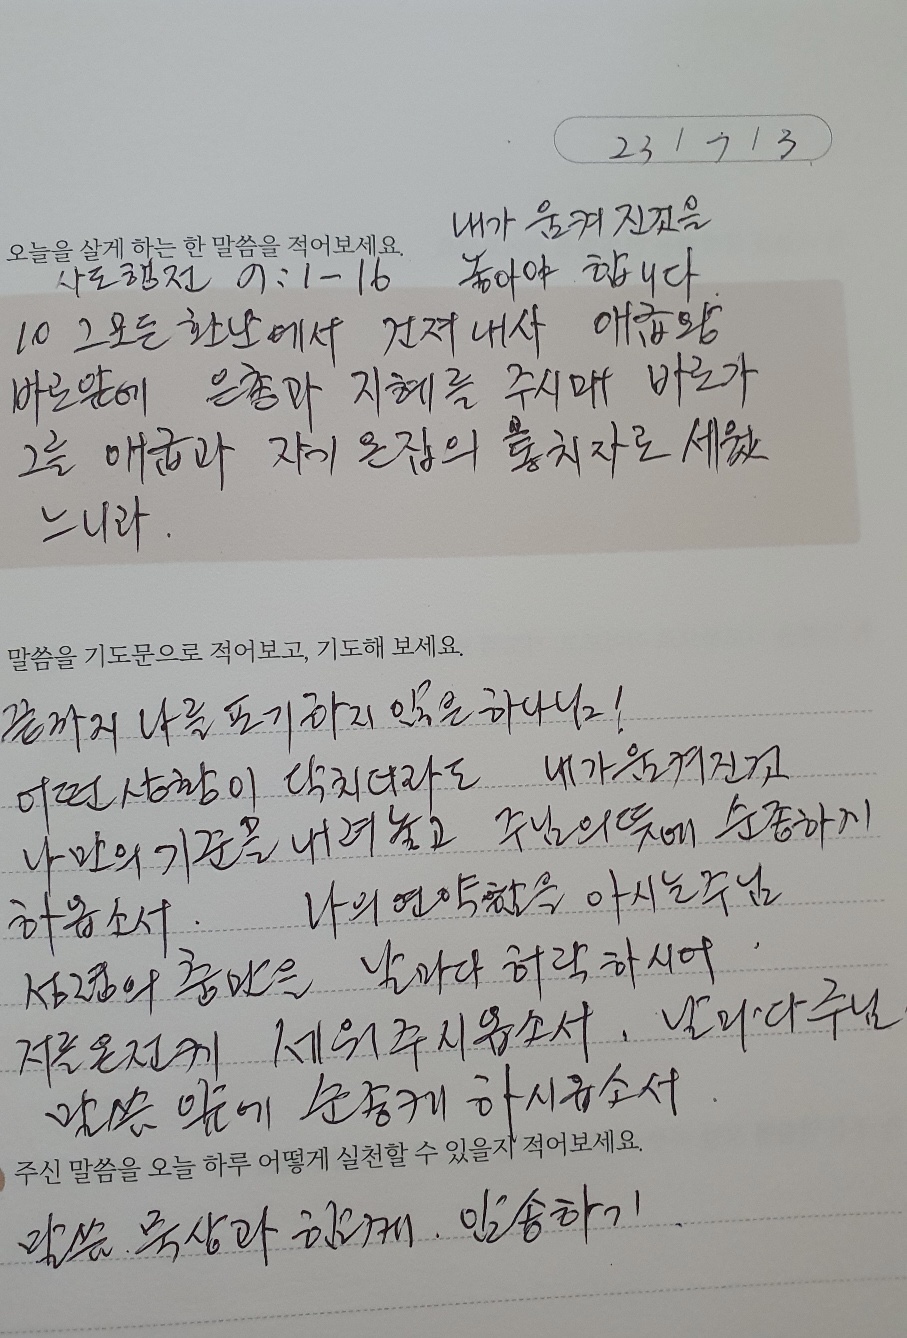 23 / 7 / 3
내가 움켜 진것을
오늘을 살게 하는 한 말씀을 적어보세요.
사도행전 7:1-16 놓아야 합니다.
10 그 모든 환난에서 건져내사 애굽왕
바로앞에 은총과 지혜를 주시매 바로가
그를 애굽과 자기 온집의 통치자로 세웠
느니라.
말씀을 기도문으로 적어보고, 기도해 보세요.
끝까지 나를 포기하지 않은 하나님!
어떤 상황이 닥치더라도 내가 움켜진것
나만의 기준을 내려놓고 주님의 뜻에 순종하게
하옵소서. 나의 연약함을 아시는 주님
성령의 충만을 날마다 허락하시어
저를 온전케 세워주시옵소서. 날마다 주님
말씀 앞에 순종케 하시옵소서.
주신 말씀을 오늘 하루 어떻게 실천할 수 있을지 적어보세요.
말씀 묵상과 함께. 암송하기.